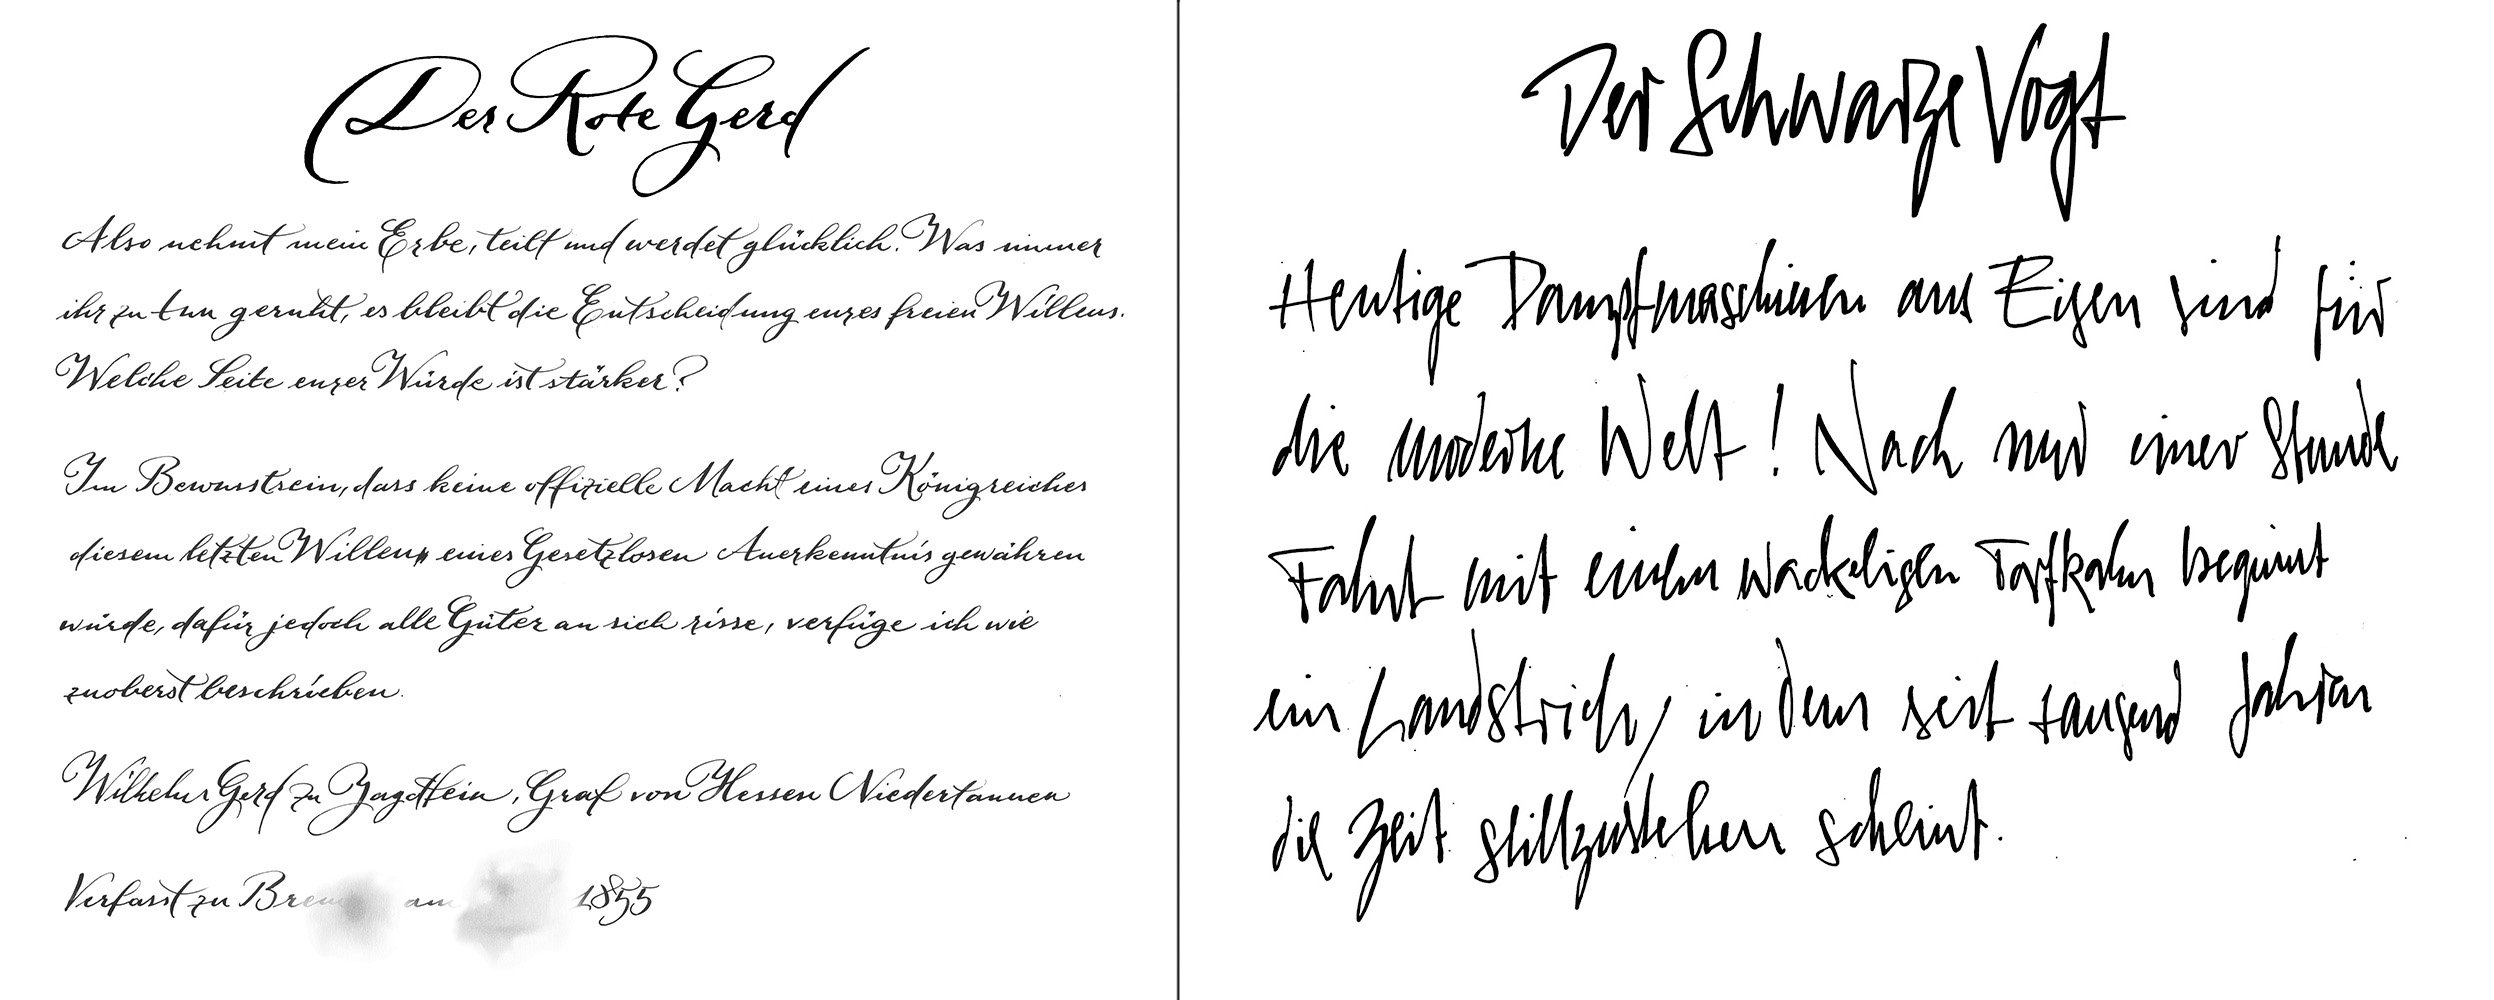 Der Rote Gerd
Also nehmt mein Erbe, teilt und werdet glücklich. Was immer
ihr zu tun geruht, es bleibt die Entscheidung eures freien Willens.
Welche Seite eurer Würde ist stärker?
Im Bewusstsein, dass keine offizielle Macht eines Königreiches
diesem letzten Willen eines Gesetzlosen Anerkenntnis gewähren
würde, dafür jedoch alle Güter an sich risse, verfüge ich wie
zuoberst beschrieben.
Wilhelm Gerd zu Jagdstein, Graf von Hessen Niedertannen
Verfasst zu am 1855
Der Schwarze Vogt
Heutige Dampfmaschinen aus Eisen sind für
die moderne Welt! Nach nur einer Stunde
Fahrt mit einem wackeligen Torfkahn beginnt
ein Landstrich, in dem seit tausend Jahren
die Zeit stillzustehen scheint.